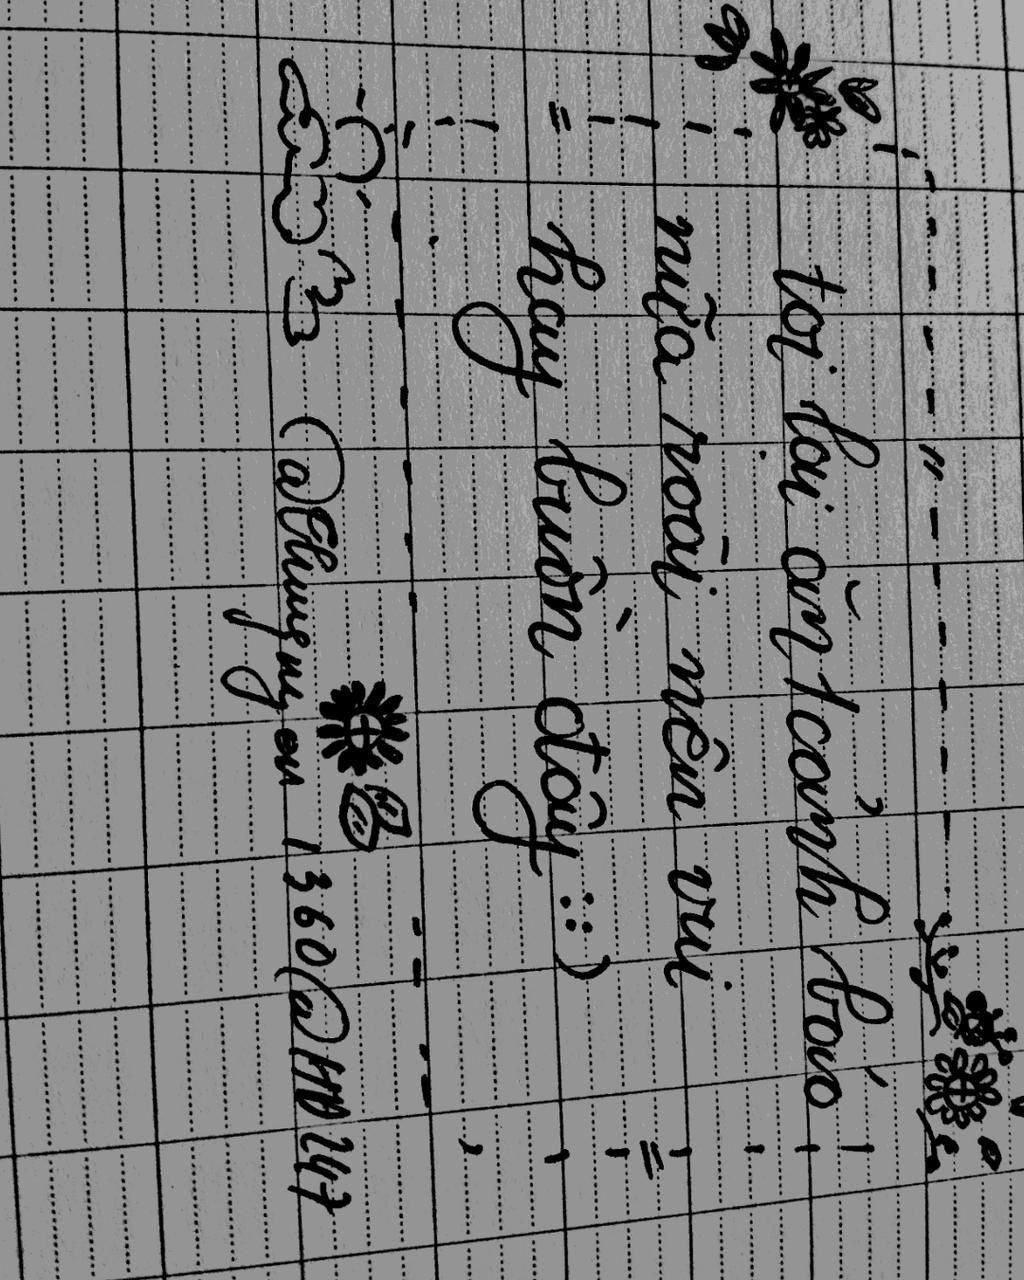 tôi lại ăn 1 cành báo
nữa roài, nên vui
hay buồn đây ::)
@Thuyguyen1360@HD247